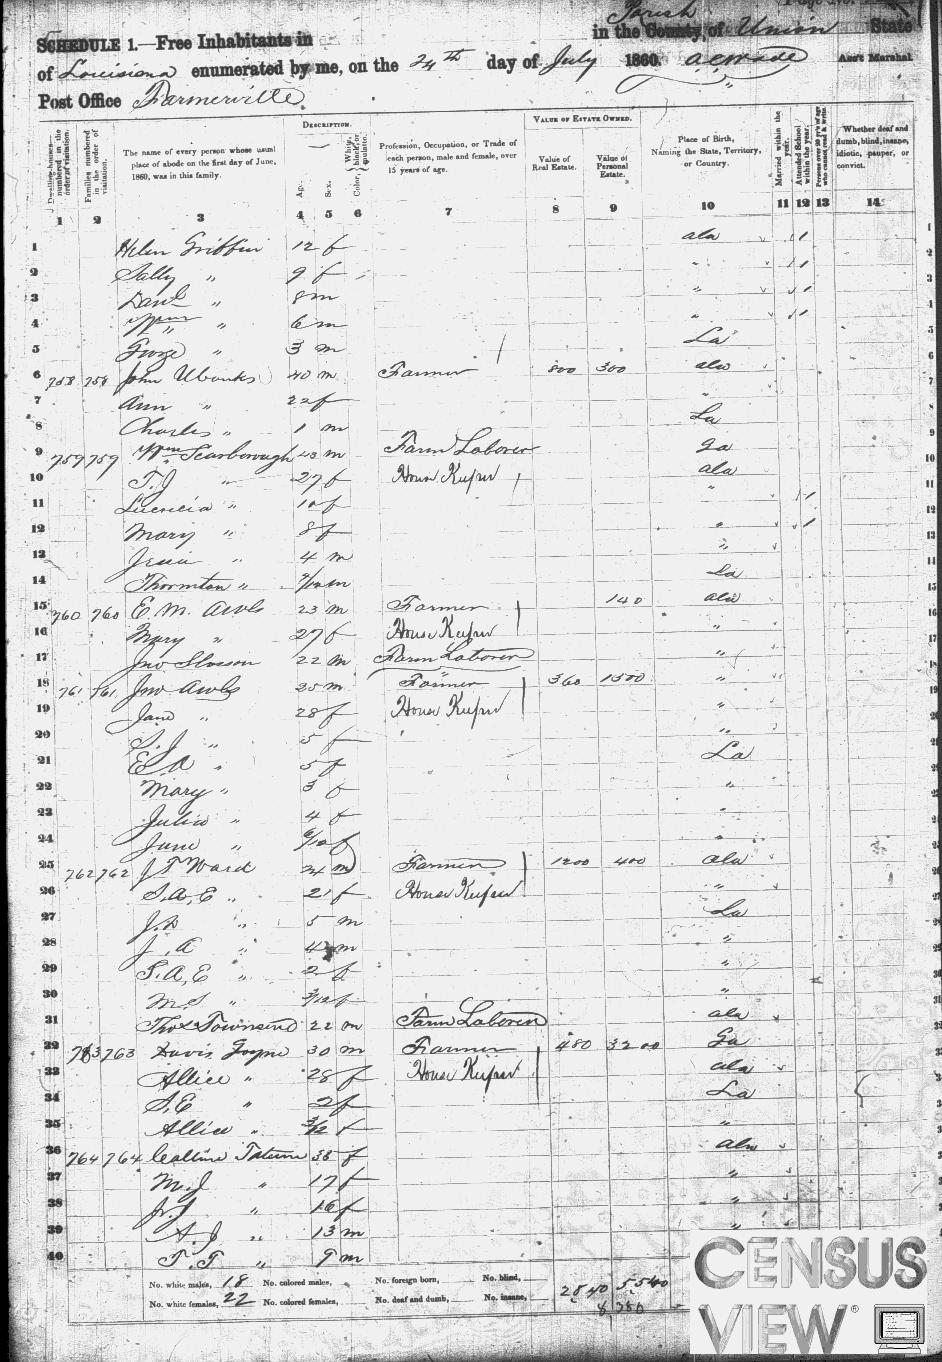 Page No.
SCHEDULE 1.—Free Inhabitants in Parish in the County of Union State
of Louisiana enumerated by me, on the 24th day of July 1860. Ass't Marshal.
Post Office Farmerville
DESCRIPTION. VALUE OF ESTATE OWNED.
Dwelling-houses—numbered in the order of visitation. Families numbered in the order of visitation. The name of every person whose usual place of abode on the first day of June, 1860, was in this family. Age. Sex. Color, White, black, or mulatto. Profession, Occupation, or Trade of each person, male and female, over 15 years of age. Value of Real Estate. Value of Personal Estate. Place of Birth, Naming the State, Territory, or Country. Married within the year. Attended School within the year. Persons over 20 y'rs of age who cannot read & write. Whether deaf and dumb, blind, insane, idiotic, pauper, or convict.
1 2 3 4 5 6 7 8 9 10 11 12 13 14
1 Helen Griffin 12 f ala 1
2 Sally " 9 f " 1
3 Danl " 8 m " 1
4 Wm " 6 m " 1
5 " 3 m La
6 758 758 John Ubanks 40 m Farmer 800 300 ala
7 Ann " 22 f "
8 Charles " 1 m La
9 759 759 Wm Scarborough 43 m Farm Laborer Ga
10 T.J " 27 f House Keeper ala
11 Lucricia " 10 f " 1
12 Mary " 8 f " 1
13 " 4 m "
14 Thornton " 7/12 m La
15 760 760 E. M. 23 m Farmer 140 ala
16 Mary " 27 f House Keeper "
17 Jno 22 m Farm Laborer "
18 761 761 Jno 35 m Farmer 360 1500 "
19 Jane " 28 f House Keeper "
20 S. J " 5 f "
21 E. A " 5 f La
22 Mary " 3 f "
23 Julia " 4 f "
24 Jane " /12 f "
25 762 762 J T Ward 24 m Farmer 1200 400 ala
26 S. A, E " 21 f House Keeper "
27 J. D " 5 m La
28 J. A " 4 m "
29 S. A, E " 2 f "
30 M. S " 3/12 f "
31 Thos Townsend 22 m Farm Laborer ala
32 763 763 Davis Goyne 30 m Farmer 480 3200 Ga
33 Allice " 28 f House Keeper ala
34 S. E " 2 f La
35 Allice " 3/12 f "
36 764 764 38 f ala
37 M. J " 17 f "
38 " 16 f "
39 A. J " 13 m "
40 T. T " 9 m
No. white males, 18 No. colored males, No. foreign born, No. blind, 2840 5540
No. white females, 22 No. colored females, No. deaf and dumb, No. insane, 8,380
CENSUS
VIEW®